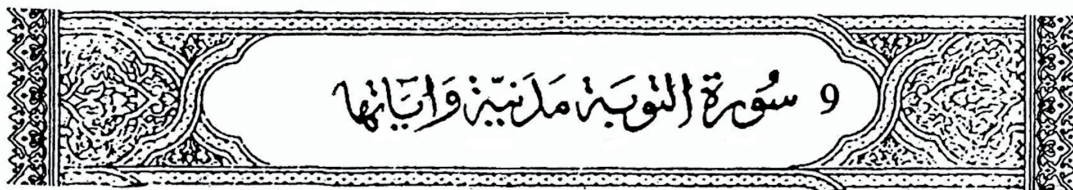 9 سُورَة التوبَة مَدَنيّة وَآيَاتها